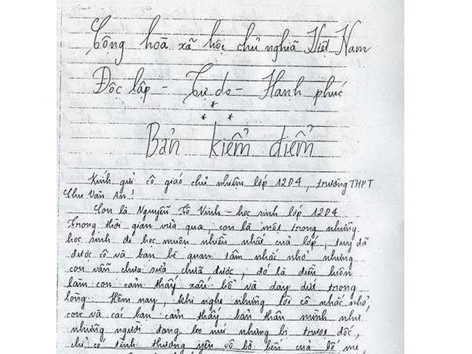 Cộng hoà xã hội chủ nghĩa Việt Nam
Độc lập - Tự do - Hạnh phúc
* * *
Bản kiểm điểm
Kính gửi cô giáo chủ nhiệm lớp 12D4, trường THPT
Chu Văn An!
Con là Nguyễn Tô Vinh - học sinh lớp 12D4
Trong thời gian vừa qua, con là một trong những
học sinh đi học muộn nhiều nhất của lớp, tuy đã
được cô và bạn bè quan tâm nhắc nhở nhưng
con vẫn chưa sửa chữa được, đó là điều luôn
làm con cảm thấy xấu hổ và day dứt trong
lòng. Hôm nay, khi nghe những lời cô nhắc nhở,
con và các bạn cảm thấy bản thân mình như
những người đang leo núi nhưng bị trượt dốc,
chỉ có tình thương yêu vô bờ bến của bố mẹ,